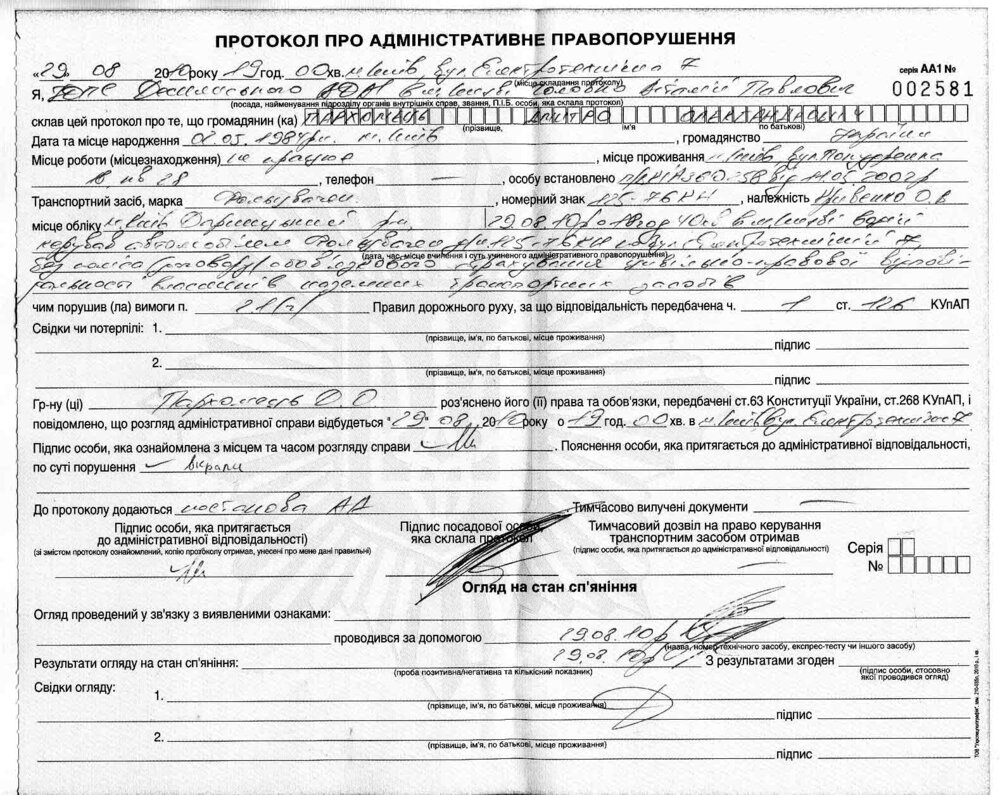 ПРОТОКОЛ ПРО АДМІНІСТРАТИВНЕ ПРАВОПОРУШЕННЯ
"29" 08 2010 року 19 год. 00 хв. м. Київ, вул. Електротехнічна 7
(місце складання протоколу)
серія АА1 №
002581
Я, Віталій Павлович
(посада, найменування підрозділу органів внутрішніх справ, звання, П.І.Б. особи, яка склала протокол)
склав цей протокол про те, що громадянин (ка) ПАРХОМЕЦЬ ДМИТРО ОЛЕКСАНДРОВИЧ
(прізвище, ім'я по батькові)
Дата та місце народження 05.1987р. м. Київ, громадянство України
Місце роботи (місцезнаходження) не працює, місце проживання м. Київ вул.
кв 28, телефон —, особу встановлено
Транспортний засіб, марка Фольцваген, номерний знак 125-76 КН, належність О.В
місце обліку м. Київ 29.08.10р о 18 год 40хв в м. Києві водій
керував автомобілем Фольцваген 125-76КН по вул Електротехнічній 7,
(дата, час, місце вчинення і суть учиненого адміністративного правопорушення)
без поліса (договору) обов'язкового страхування цивільно-правової відпові-
дальності власників наземних транспортних засобів
чим порушив (ла) вимоги п. 2.1(ґ) Правил дорожнього руху, за що відповідальність передбачена ч. 1 ст. 126 КУпАП
Свідки чи потерпілі: 1.
(прізвище, ім'я, по батькові, місце проживання)
підпис
2.
(прізвище, ім'я, по батькові, місце проживання)
підпис
Гр-ну (ці) Пархомець Д О роз'яснено його (її) права та обов'язки, передбачені ст.63 Конституції України, ст.268 КУпАП, і
повідомлено, що розгляд адміністративної справи відбудеться "29" 08 2010 року о 19 год. 00 хв. в м. Київ вул Електротехнічна 7
Підпис особи, яка ознайомлена з місцем та часом розгляду справи . Пояснення особи, яка притягається до адміністративної відповідальності,
по суті порушення — вкрали
До протоколу додаються постанова АА . Тимчасово вилучені документи —
Підпис особи, яка притягається
до адміністративної відповідальності)
(зі змістом протоколу ознайомлений, копію протоколу отримав, унесені про мене дані правильні)
Підпис посадової особи,
яка склала протокол
Тимчасовий дозвіл на право керування
транспортним засобом отримав
(підпис особи, яка притягається до адміністративної відповідальності)
Серія
№
Огляд на стан сп'яніння
Огляд проведений у зв'язку з виявленими ознаками:
проводився за допомогою 29.08.10р
(назва, номер технічного засобу, експрес-тесту чи іншого засобу)
Результати огляду на стан сп'яніння: 29.08.10р З результатами згоден
(проба позитивна/негативна та кількісний показник)
(підпис особи, стосовно
якої проводився огляд)
Свідки огляду:
1.
(прізвище, ім'я, по батькові, місце проживання)
підпис
2.
(прізвище, ім'я, по батькові, місце проживання)
підпис